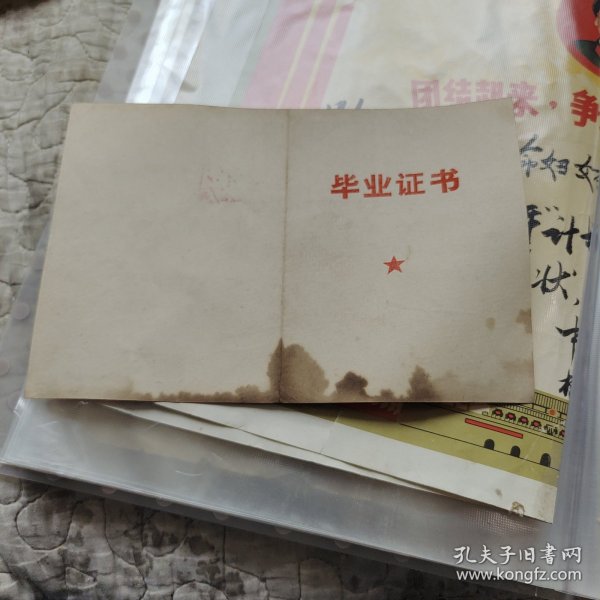 团结起来，争
毕业证书
妇
计
状，
孔夫子旧书网
www.kongfz.com